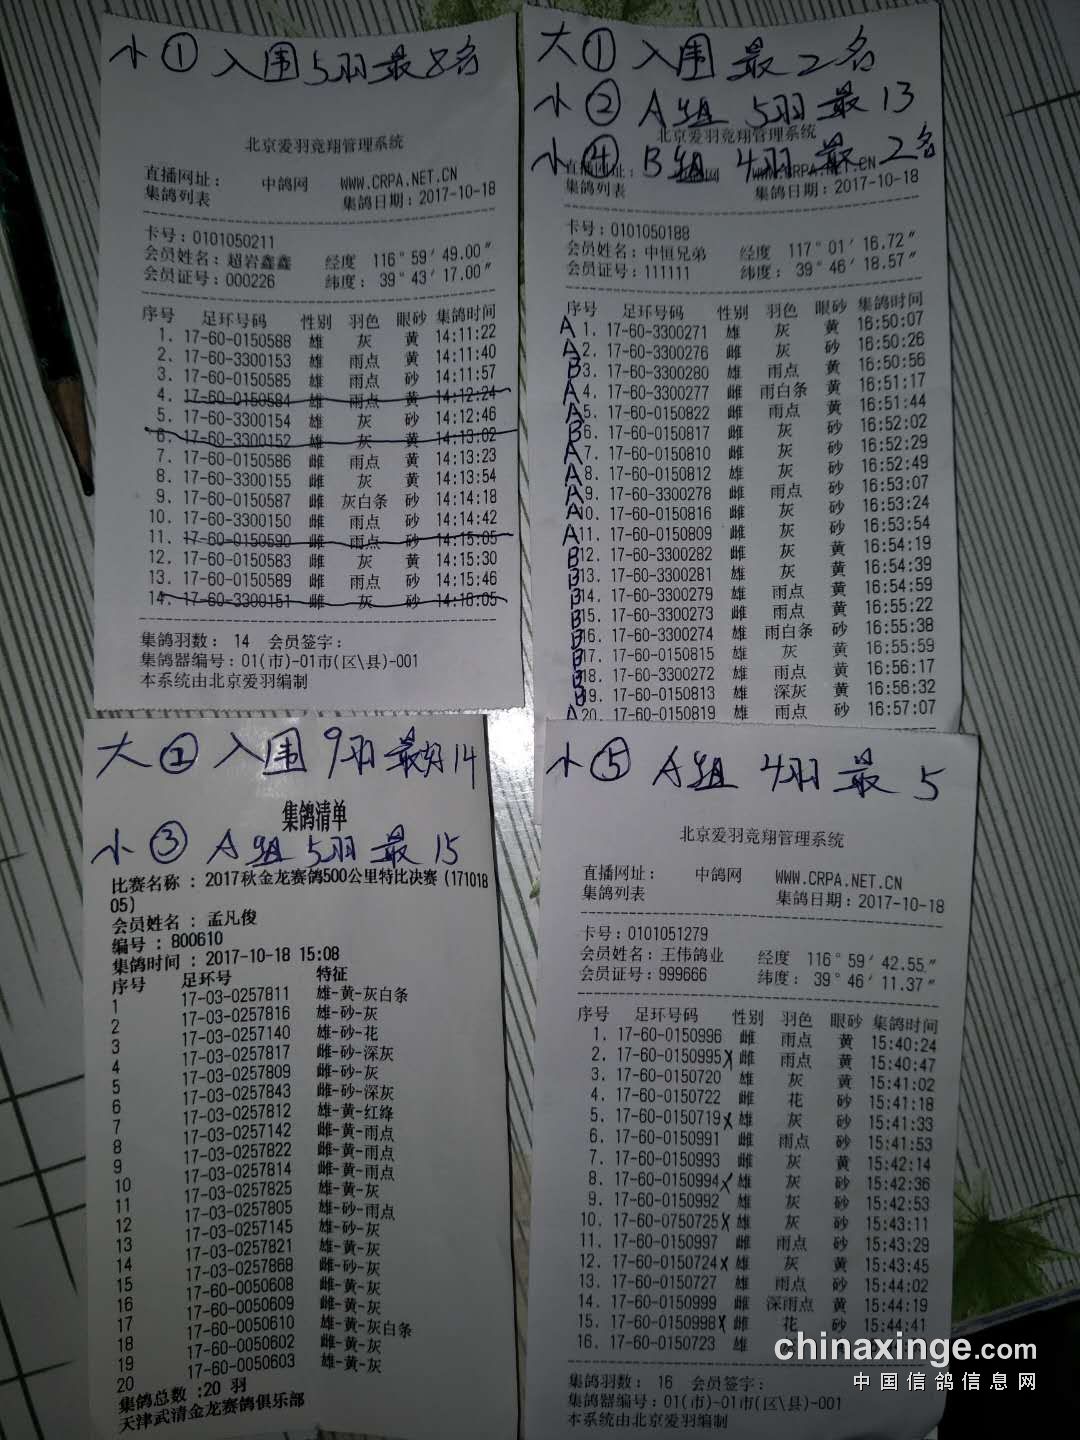 小① 入围5羽最8名
北京爱羽竞翔管理系统
直播网址： 中鸽网 WWW.CRPA.NET.CN
集鸽列表 集鸽日期：2017-10-18
卡号：0101050211
会员姓名：超岩鑫鑫 经度 116°59′49.00″
会员证号：000226 纬度：39°43′17.00″
序号 足环号码 性别 羽色 眼砂 集鸽时间
1. 17-60-0150588 雄 灰 黄 14:11:22
2. 17-60-3300153 雄 雨点 黄 14:11:40
3. 17-60-0150585 雄 雨点 砂 14:11:57
4. 17-60-0150584 雄 雨点 黄 14:12:24
5. 17-60-3300154 雄 灰 砂 14:12:46
6. 17-60-3300152 雄 灰 黄 14:13:02
7. 17-60-0150586 雌 雨点 黄 14:13:23
8. 17-60-3300155 雌 灰 黄 14:13:54
9. 17-60-0150587 雌 灰白条 砂 14:14:18
10. 17-60-3300150 雌 雨点 砂 14:14:42
11. 17-60-0150590 雌 雨点 砂 14:15:05
12. 17-60-0150583 雌 灰 黄 14:15:30
13. 17-60-0150589 雌 雨点 砂 14:15:46
14. 17-60-3300151 雌 灰 砂 14:16:05
集鸽羽数： 14 会员签字：
集鸽器编号：01(市)-01市(区\县)-001
本系统由北京爱羽编制
大① 入围 最2名
小② A组 5羽 最13
北京爱羽竞翔管理系统
小④ B组 4羽 最2名
直播网址： WWW.CRPA.NET.CN
集鸽列表 集鸽日期：2017-10-18
卡号：0101050188
会员姓名：中恒兄弟 经度 117°01′16.72″
会员证号：111111 纬度：39°46′18.57″
序号 足环号码 性别 羽色 眼砂 集鸽时间
A 1. 17-60-3300271 雄 灰 黄 16:50:07
A 2. 17-60-3300276 雌 灰 砂 16:50:26
B 3. 17-60-3300280 雄 雨点 黄 16:50:56
A 4. 17-60-3300277 雌 雨白条 黄 16:51:17
A 5. 17-60-0150822 雌 雨点 黄 16:51:44
B 6. 17-60-0150817 雌 灰 砂 16:52:02
A 7. 17-60-0150810 雌 灰 砂 16:52:29
A 8. 17-60-0150812 雄 灰 砂 16:52:49
A 9. 17-60-3300278 雌 雨点 砂 16:53:07
A 10. 17-60-0150816 雌 灰 砂 16:53:24
A 11. 17-60-0150809 雌 灰 砂 16:53:54
B 12. 17-60-3300282 雌 灰 黄 16:54:19
B 13. 17-60-3300281 雄 灰 黄 16:54:39
B 14. 17-60-3300279 雄 雨点 黄 16:54:59
B 15. 17-60-3300273 雌 雨点 黄 16:55:22
B 16. 17-60-3300274 雄 雨白条 砂 16:55:38
B 17. 17-60-0150815 雄 灰 黄 16:55:59
B 18. 17-60-3300272 雄 雨点 黄 16:56:17
B 19. 17-60-0150813 雄 深灰 黄 16:56:32
A 20. 17-60-0150819 雄 雨点 砂 16:57:07
大② 入围 9羽 最好14
集鸽清单
小③ A组 5羽 最15
比赛名称 ：2017秋金龙赛鸽500公里特比决赛(171018
05)
会员姓名 ：孟凡俊
编号 ：800610
集鸽时间 ：2017-10-18 15:08
序号 足环号 特征
1 17-03-0257811 雄-黄-灰白条
2 17-03-0257816 雄-砂-灰
3 17-03-0257140 雄-砂-花
4 17-03-0257817 雌-砂-深灰
5 17-03-0257809 雌-砂-灰
6 17-03-0257843 雌-砂-深灰
7 17-03-0257812 雄-黄-红绛
8 17-03-0257142 雌-黄-雨点
9 17-03-0257822 雌-黄-雨点
10 17-03-0257814 雌-黄-雨点
11 17-03-0257825 雄-黄-灰
12 17-03-0257805 雄-砂-雨点
13 17-03-0257145 雄-砂-灰
14 17-03-0257821 雄-黄-灰
15 17-03-0257868 雌-砂-灰
16 17-60-0050608 雌-黄-灰
17 17-60-0050609 雄-黄-灰
18 17-60-0050610 雄-黄-灰白条
19 17-60-0050602 雌-黄-灰
20 17-60-0050603 雄-黄-灰
集鸽总数 :20 羽
天津武清金龙赛鸽俱乐部
小⑤ A组 4羽 最 5
北京爱羽竞翔管理系统
直播网址： 中鸽网 WWW.CRPA.NET.CN
集鸽列表 集鸽日期：2017-10-18
卡号：0101051279
会员姓名：王伟鸽业 经度 116°59′42.55″
会员证号：999666 纬度：39°46′11.37″
序号 足环号码 性别 羽色 眼砂 集鸽时间
1. 17-60-0150996 雌 雨点 黄 15:40:24
2. 17-60-0150995 X 雌 雨点 黄 15:40:47
3. 17-60-0150720 雄 灰 黄 15:41:02
4. 17-60-0150722 雌 花 砂 15:41:18
5. 17-60-0150719 X 雄 灰 砂 15:41:33
6. 17-60-0150991 雌 雨点 砂 15:41:53
7. 17-60-0150993 雌 灰 黄 15:42:14
8. 17-60-0150994 X 雄 灰 砂 15:42:36
9. 17-60-0150992 雌 灰 砂 15:42:53
10. 17-60-0750725 X 雄 灰 砂 15:43:11
11. 17-60-0150997 雌 雨点 砂 15:43:29
12. 17-60-0150724 X 雄 灰 黄 15:43:45
13. 17-60-0150727 雄 雨点 砂 15:44:02
14. 17-60-0150999 雌 深雨点 黄 15:44:19
15. 17-60-0150998 X 雌 花 砂 15:44:41
16. 17-60-0150723 雄
集鸽羽数： 16 会员签字：
集鸽器编号：01(市)-01市(区\县)-001
本系统由北京爱羽编制
chinaxinge.com
中国信鸽信息网